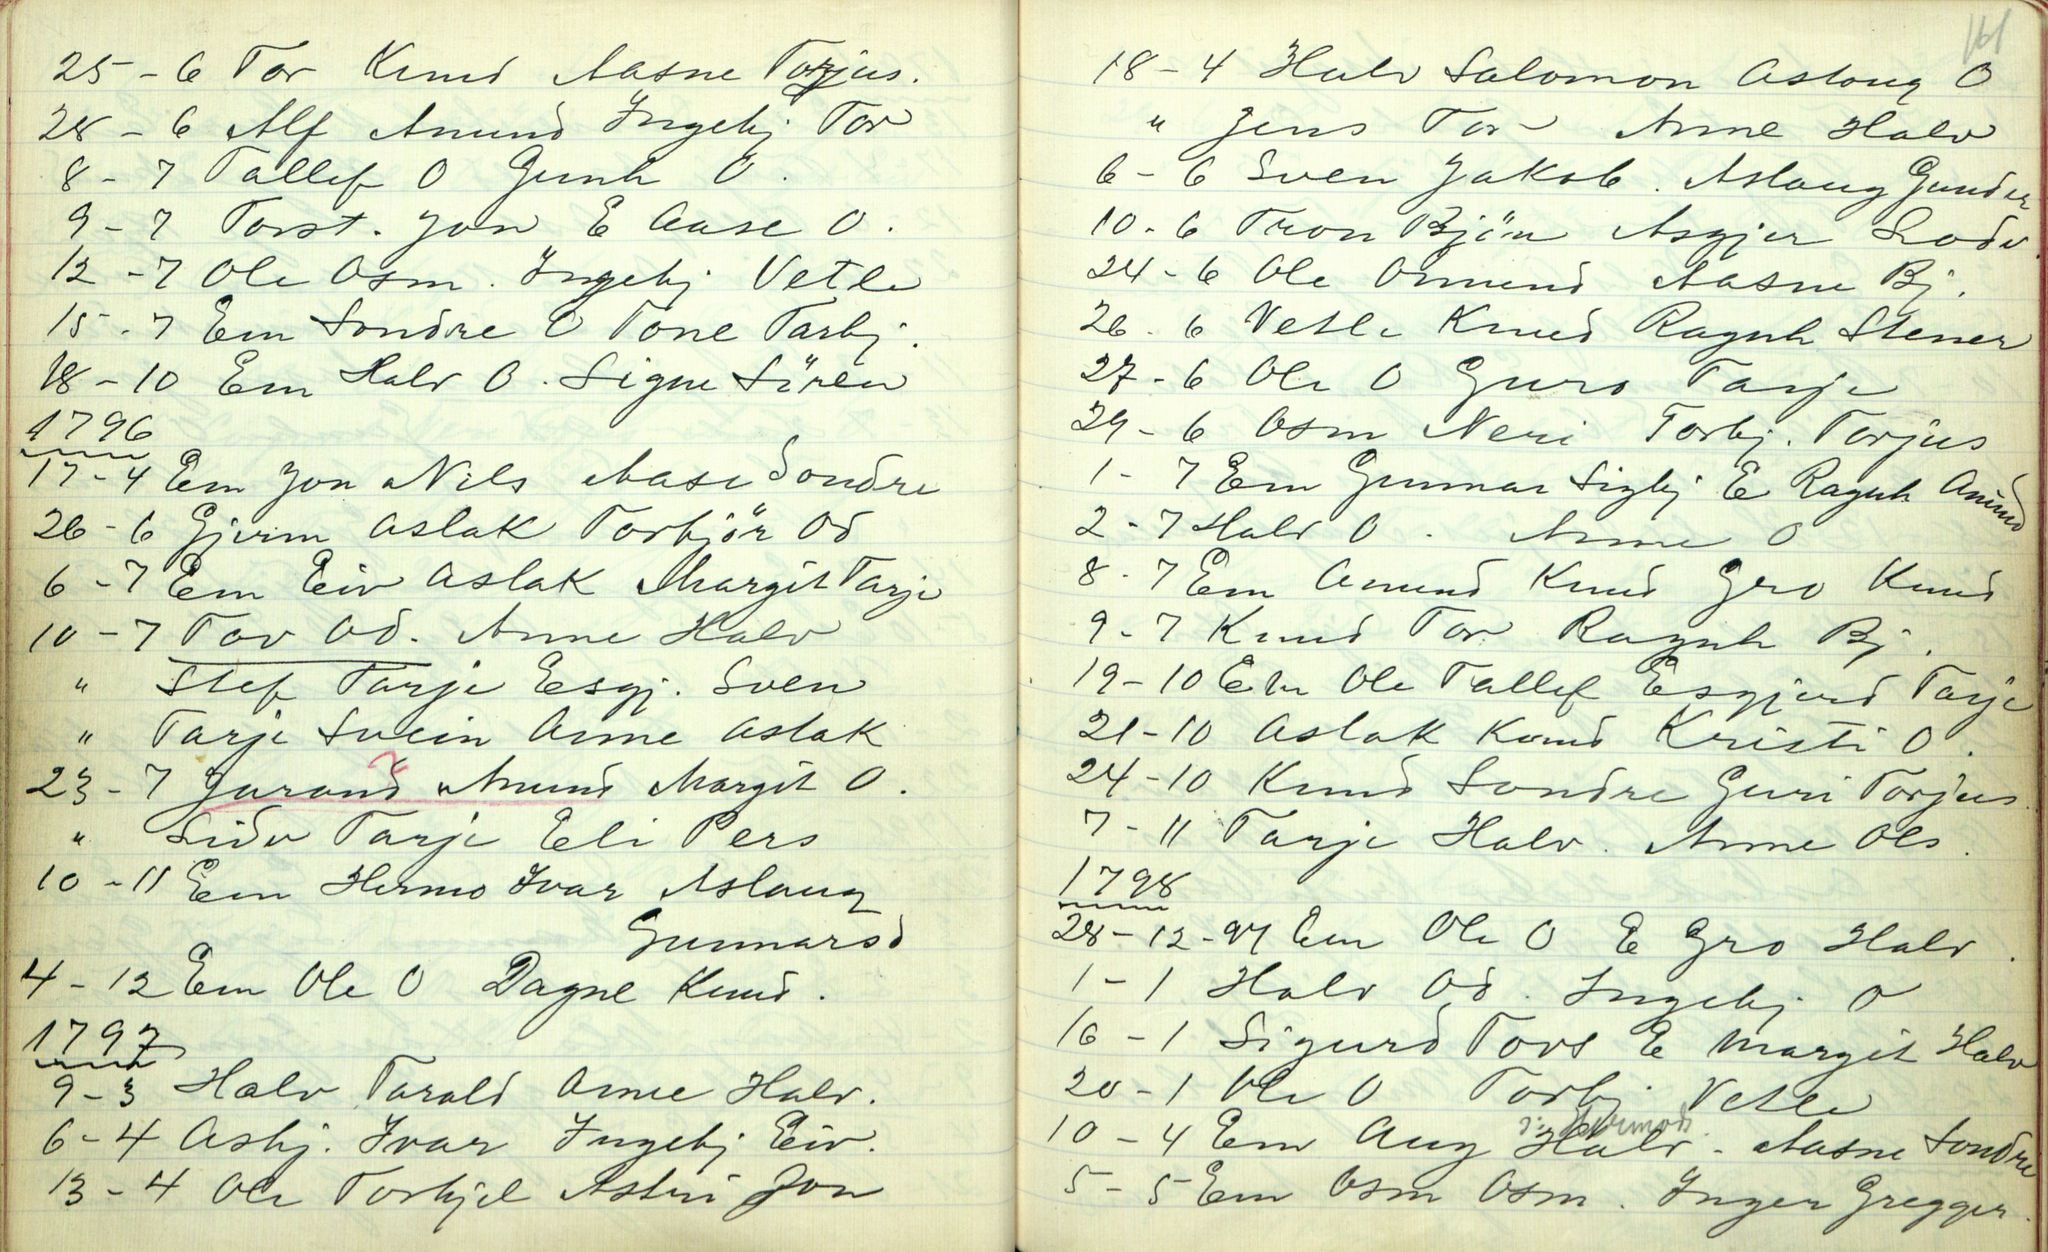 25 - 6 Tor Knud Aasne Torjus.
28 - 6 Alf Anund Ingebj Tor
8 - 7 Tallef O Gunh O.
9 - 7 Torst. Jon E Aase O.
12 - 7 Ole Osm. Ingebj Vetle
15 - 7 Em Sondre O Tone Tarbj.
18 - 10 Em Halv O. Signe Sören
1796
17 - 4 Em Jon Nils Aase Sondre
26 - 6 Gjerm Aslak Torbjör Od
6 - 7 Em Eiv Aslak Margit Tarje
10 - 7 Tov Od. Anne Halv
" Stef Tarje Esgj. Sven
" Tarje Svein Anne Aslak
23 - 7 Jurand Anund Margit O.
" Sidv Tarje Eli Pers
10 - 11 Em Hermo Ivar Aslaug
Gunnarsd
4 - 12 Em Ole O Dagne Knud.
1797
9 - 3 Halv Tarald Anne Halv.
6 - 4 Asbj. Ivar Ingebj Eiv.
13 - 4 Ole Torkjel Astri Jon
161
18 - 4 Halv Salomon Aslaug O
" Jens Tor Anne Halv
6 - 6 Sven Jakob. Aslaug Gunder
10 - 6 Tron Bjön Asgjer Lodv.
24 - 6 Ole Omund Aasne Bj.
26 - 6 Vetle Knud Ragnh Stener
27 - 6 Ole O Guro Tarje
29 - 6 Osm Neri Torbj. Torjus
1 - 7 Em Gunnar Sigbj E Ragnh Anund
2 - 7 Halv O. Anne O
8 - 7 Em Amund Knud Gro Knud
9 - 7 Knud Tor Ragnh Bj.
19 - 10 Em Ole Tallef Esgjerd Tarje
21 - 10 Aslak Knud Kristi O.
24 - 10 Knud Sondre Guri Torjus.
7 - 11 Tarje Halv. Anne Ols.
1798
28 - 12 - 97 Em Ole O E Gro Halv.
1 - 1 Halv Od. Ingebj O
16 - 1 Sigurd Tovs E Margit Halv
20 - 1 Ole O Torbj Vetle
10 - 4 Em Aug Halv - Aasne Sondre
5 - 5 Em Osm Osm. Inger Gregger.